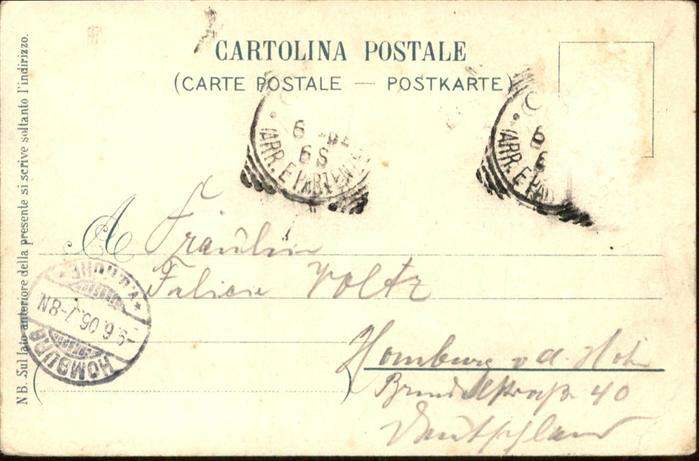 CARTOLINA POSTALE
(CARTE POSTALE — POSTKARTE)
NB. Sul lato anteriore della presente si scrive soltanto l'indirizzo.
6
6S
ARR. E PARTENZ
6
ARR. E PA
A Fräulein
Voltz
Homburg v. d. Höh
40
Deutschland
HOMBURG
9.6.05.7-8N
* v.d.HÖHE *